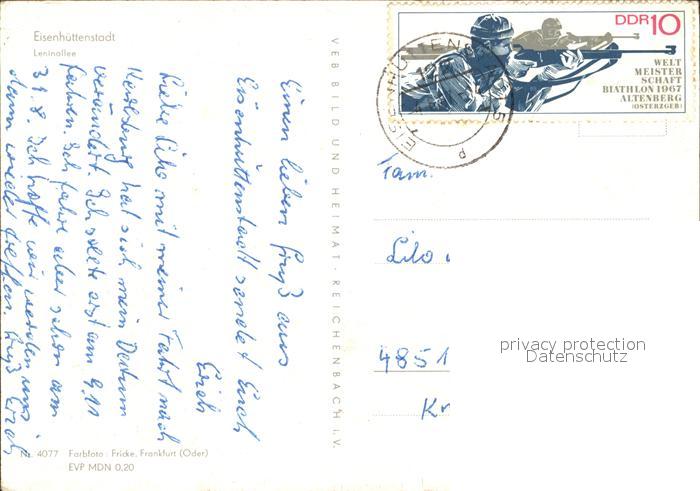 Eisenhüttenstadt
Leninallee
Einen lieben Gruß aus
Eisenhüttenstadt sendet Euch
Erich
Liebe Lilo mit meiner Fahrt nach
hat sich mein Datum
verändert. Ich sollte erst am 9.11
fahren. Ich fahre aber schon am
31.8. Ich hoffe wir werden uns
dann wieder treffen. Gruß Erich
Nr. 4077 Farbfoto: Fricke, Frankfurt (Oder)
EVP MDN 0,20
VEB BILD UND HEIMAT · REICHENBACH i. V.
DDR 10
WELT
MEISTER
SCHAFT
BIATHLON 1967
ALTENBERG
(OSTERZGEB)
Fam.
Lilo
4851
Kr
privacy protection
Datenschutz